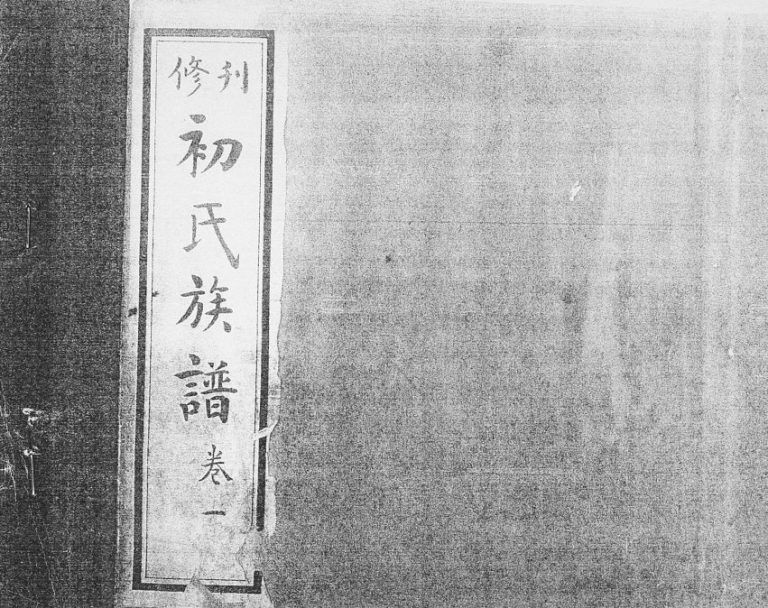 刊修
初氏族譜
卷一